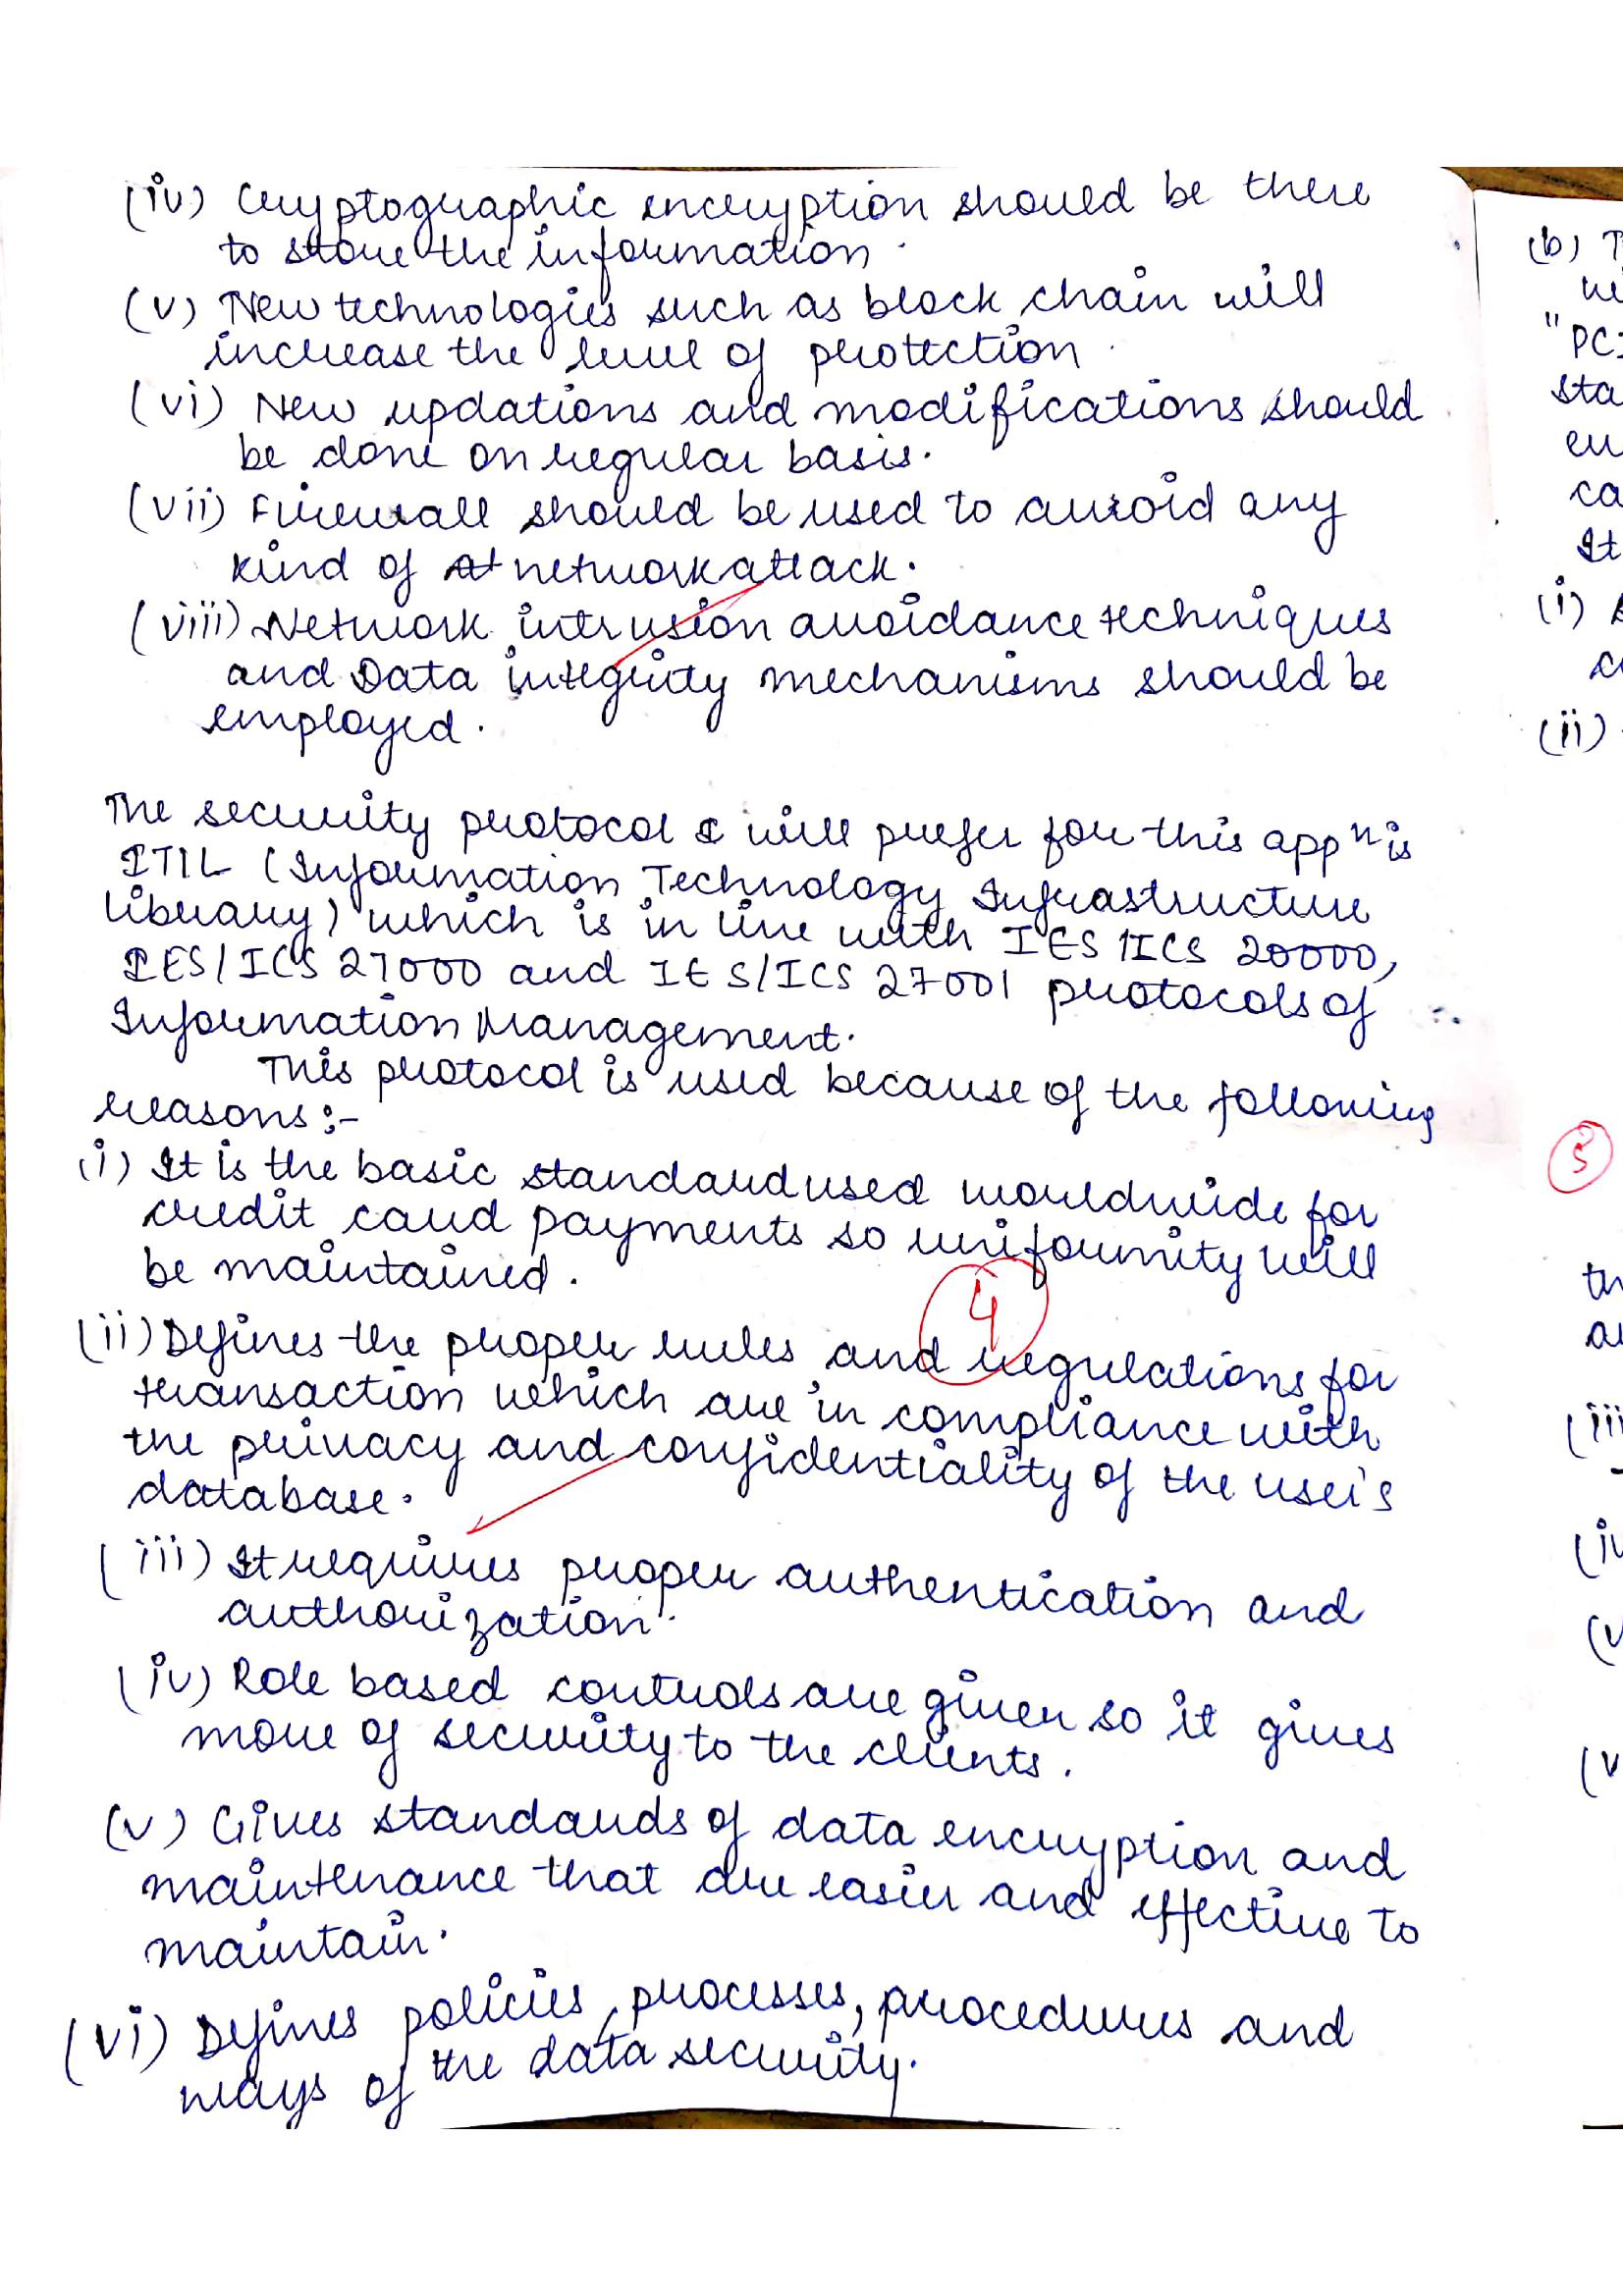 (iv) Cryptographic encryption should be there
to store the information.
(v) New technologies such as block chain will
increase the level of protection.
(vi) New updations and modifications should
be done on regular basis.
(vii) Firewall should be used to avoid any
kind of network attack.
(viii) Network intrusion avoidance techniques
and Data integrity mechanisms should be
employed.
The security protocol I will prefer for this appⁿ is
ITIL (Information Technology Infrastructure
library) which is in line with IES/ICS 20000,
IES/ICS 27000 and IES/ICS 27001 protocols of
Information Management.
This protocol is used because of the following
reasons:-
(i) It is the basic standard used worldwide for
credit card payments so uniformity will
be maintained.
4
(ii) Defines the proper rules and regulations for
transaction which are in compliance with
the privacy and confidentiality of the user's
database.
(iii) It requires proper authentication and
authorization.
(iv) Role based controls are given so it gives
more of security to the clients.
(v) Gives standards of data encryption and
maintenance that are easier and effective to
maintain.
(vi) Defines policies, processes, procedures and
ways of the data security.
(b)
"PC
sta
(i)
(ii)
5
(iii
(iv
(v